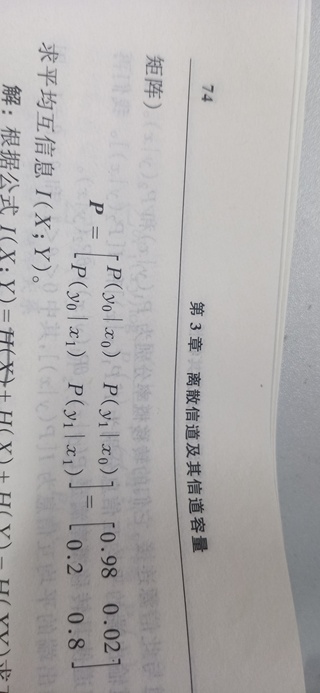 74
第 3 章 离散信道及其信道容量
矩阵)
P = [ P(y₀|x₀) P(y₁|x₀) ] = [ 0.98 0.02 ]
[ P(y₀|x₁) P(y₁|x₁) ] [ 0.2 0.8 ]
求平均互信息 I(X;Y)。
解:根据公式 I(X;Y)=H(X)+H(X)+H(Y)-H(XY)求